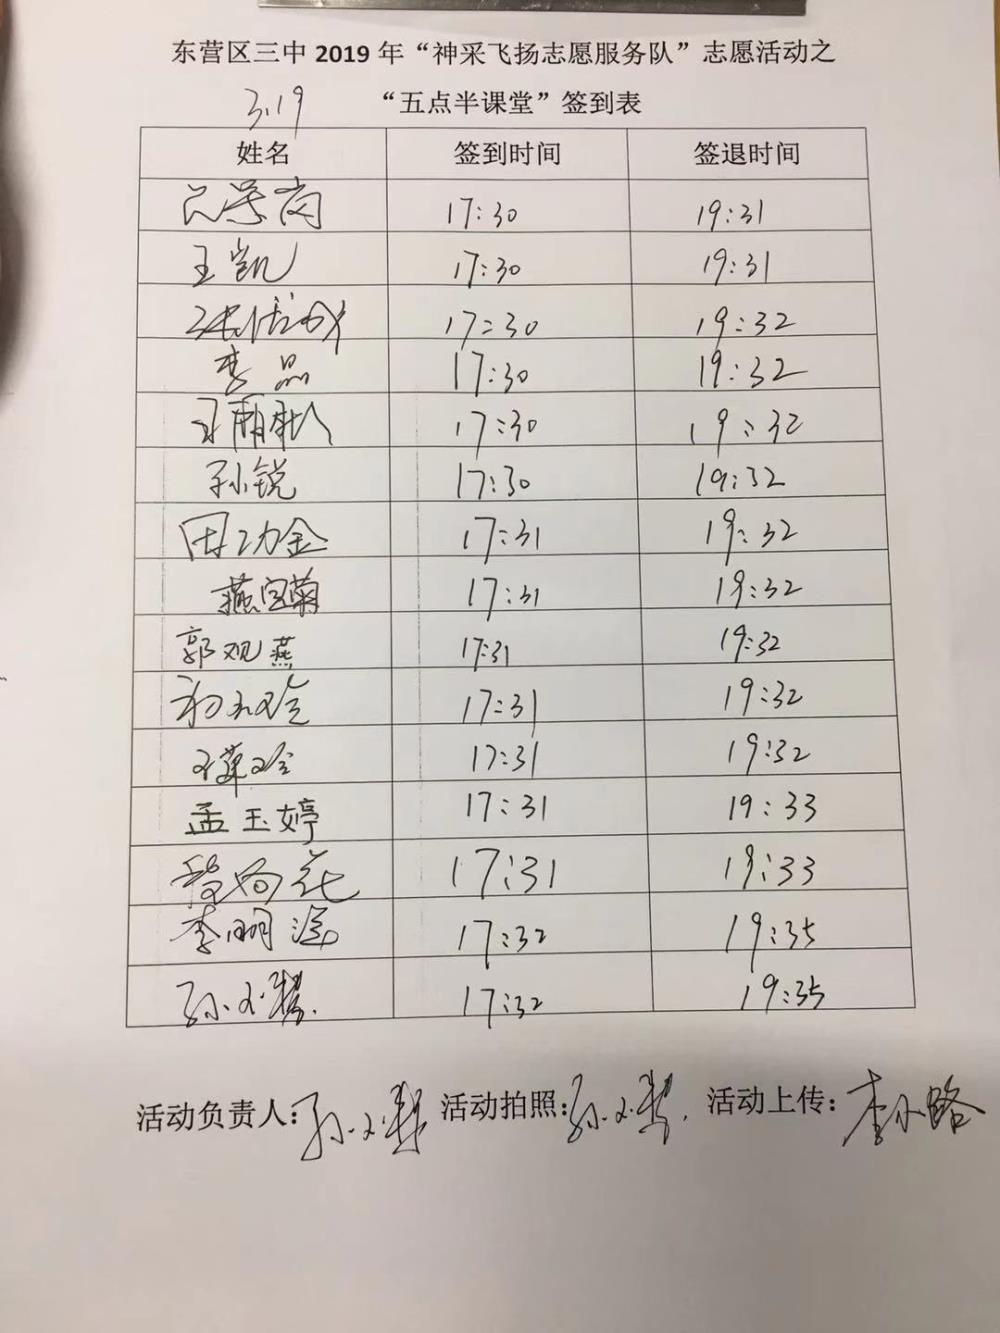 东营区三中 2019 年“神采飞扬志愿服务队”志愿活动之
3.19 “五点半课堂”签到表
姓名 签到时间 签退时间
17:30 19:31
王凯 17:30 19:31
17:30 19:32
李品 17:30 19:32
17:30 19:32
孙锐 17:30 19:32
田功金 17:31 19:32
燕宝菊 17:31 19:32
郭观燕 17:31 19:32
17:31 19:32
17:31 19:32
孟玉婷 17:31 19:33
17:31 19:33
李明 17:32 19:35
孙 17:32 19:35
活动负责人:孙 活动拍照:孙 活动上传:李小路